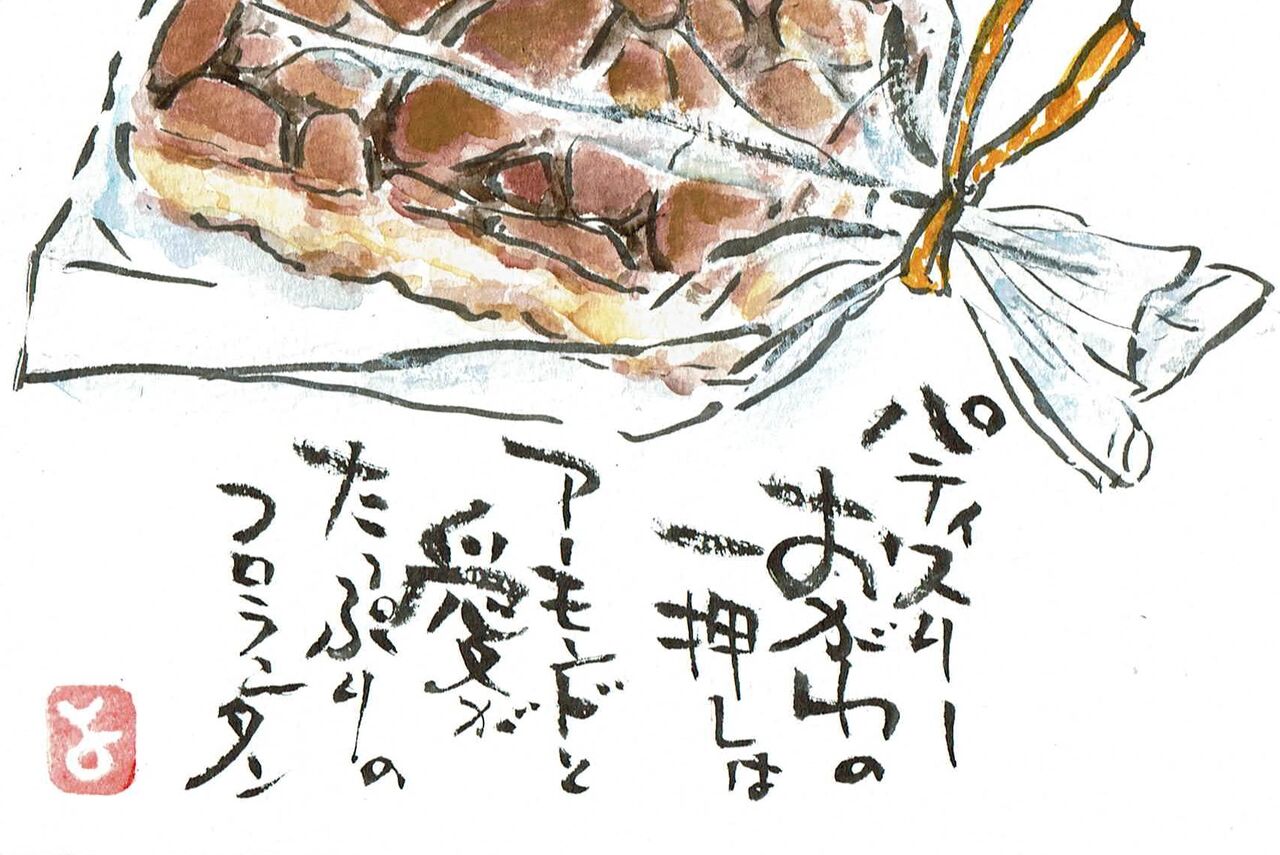 パティスリー
おがわの
一押しは
アーモンドと
愛が
たっぷりの
フロランタン